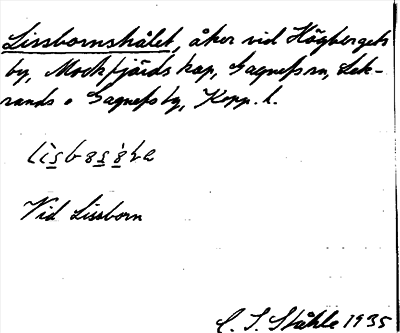 Lissbornshålet, åker vid Högbergets
by, Mockfjärds kap, Gagnefs sn, Lek-
sands o Gagnefs tg, Kopp. l.
Vid Lissborn
C. I. Ståhle 1935